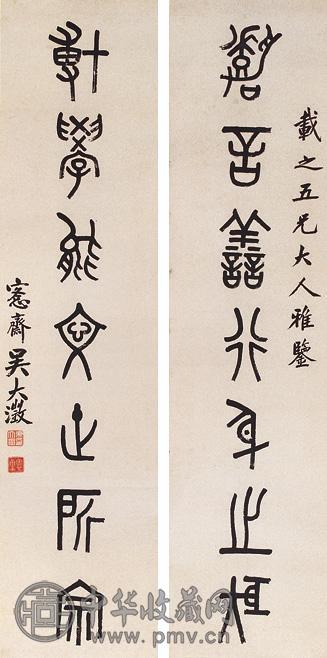 載之五兄大人雅鑒
嘉言善行身之
博學能文止所
愙齋吳大澂
中华收藏网
www.pmv.cn